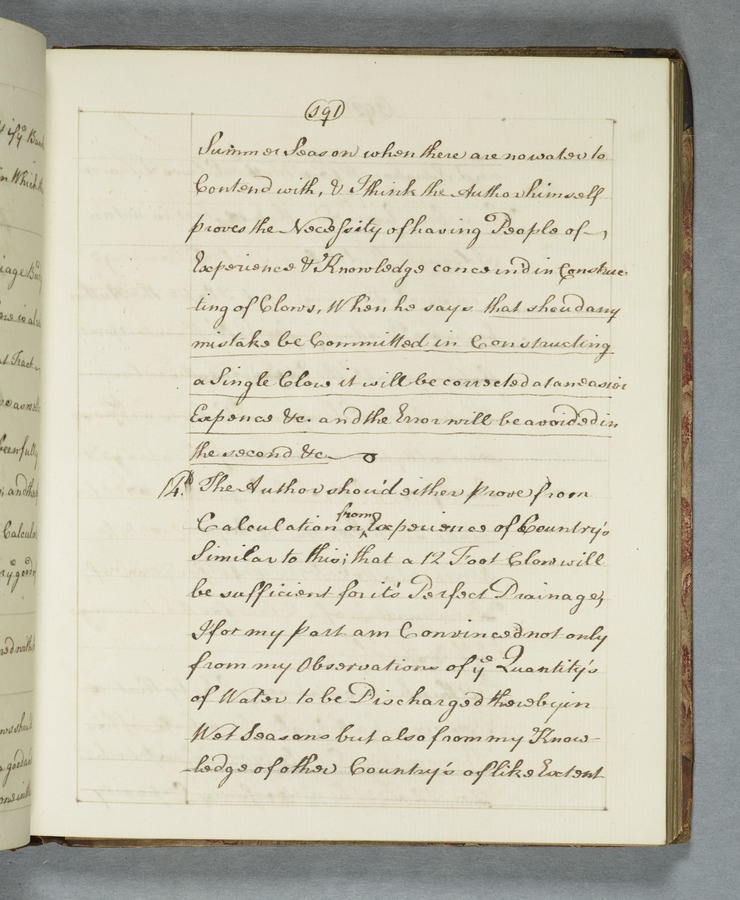 191
Summer Season when there are no water to
Contend with, & I think the Author himself
proves the Necessity of having People of
Experience & Knowledge concern'd in Construc
ting of Clows, When he says that shou'd any
mistake be Committed in Constructing
a Single Clow it will be corrected at an easier
Expence &c. and the Error will be avoided in
the second &c
14.th The Author shou'd either prove from
Calculation or from Experience of Country's
Similar to this; that a 12 Foot Clow will
be sufficient for it's Perfect Drainage;
I for my part am Convinced not only
from my Observations of ye Quantity's
of Water to be Discharged thereby in
Wet Seasons but also from my Know-
ledge of other Country's of like Extent